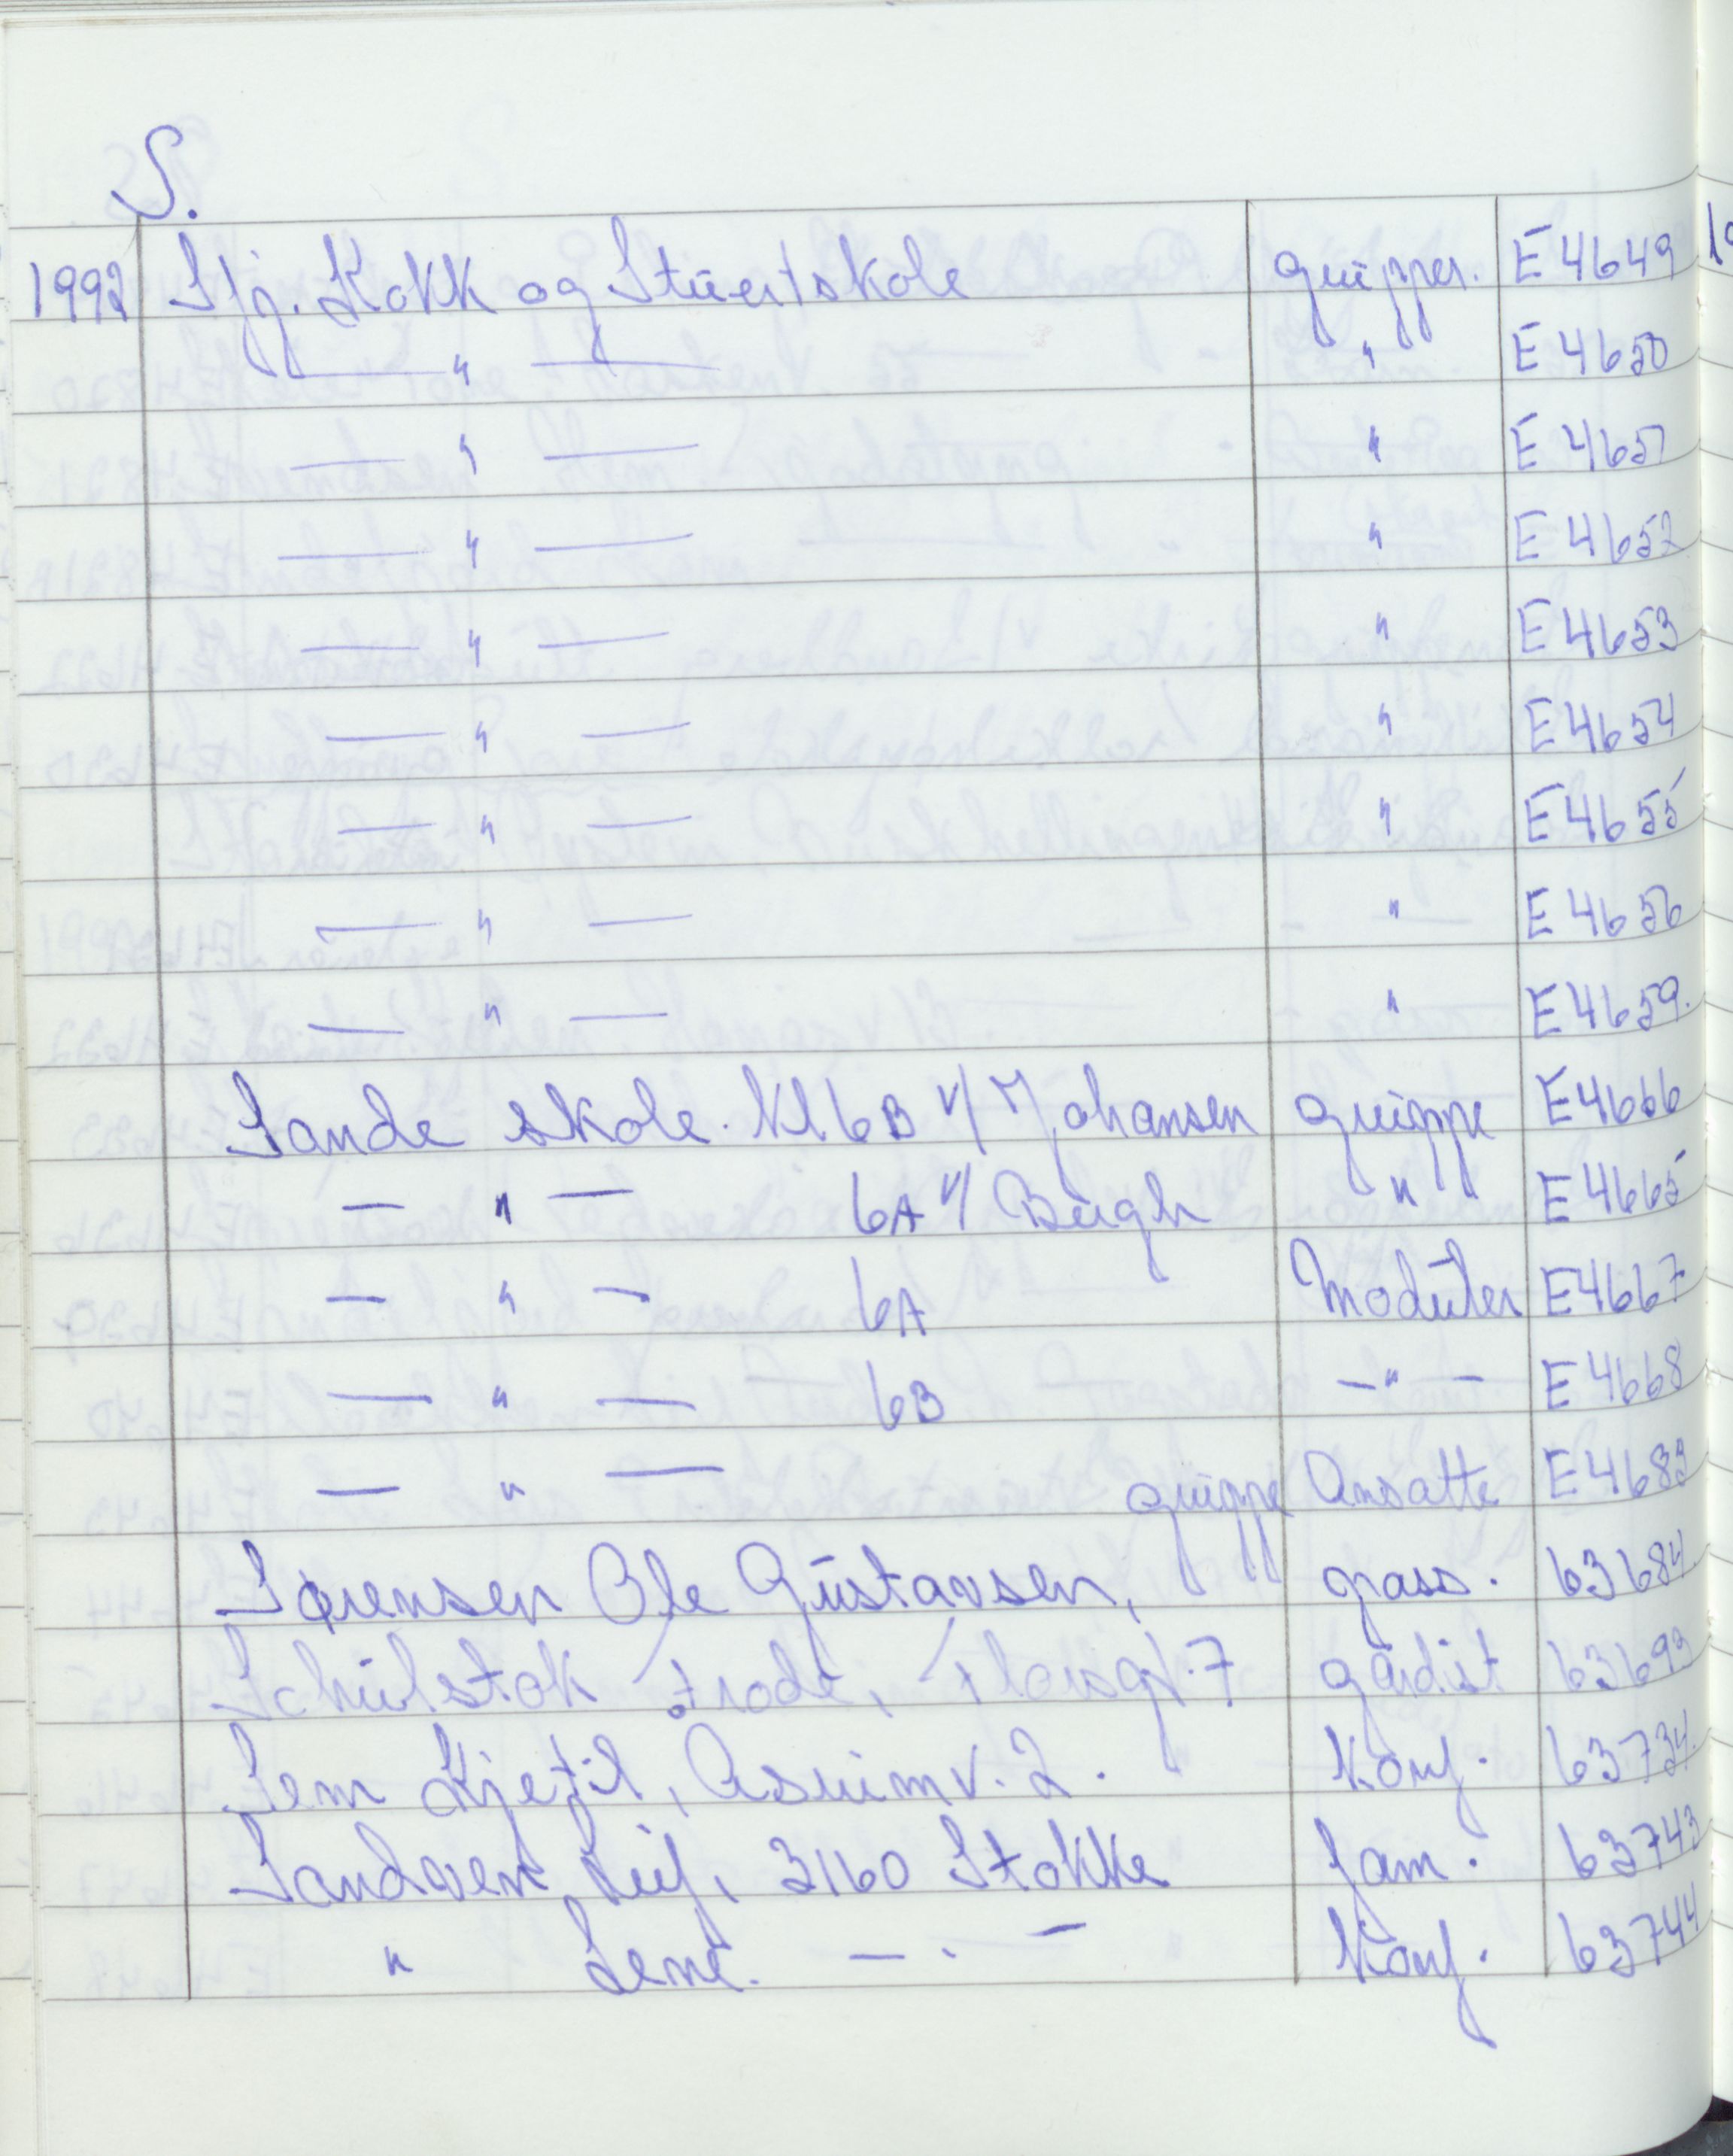 S.
1992 Sfj. Kokk og Stuertskole grupper. E 4649
— " — " E 4650
— " — " E 4651
— " — " E 4652
— " — " E 4653
— " — " E 4654
— " — " E 4655
— " — " E 4656
— " — " E 4659.
Sande skole. Kl 6B v/ Johansen gruppe E4666
— " — 6A v/ Bugh " E4665
— " — 6A Moduler E4667
— " — 6B — " — E4668
— " — gruppe Ansatte E4683
Sørensen Ole Gustavsen, pass. 63684
Schulstok Frode, gardist 63693
Sem Kjetil, Asrumv. 2. Konf. 63734.
Sandven, Leif, 3160 Stokke fam. 63743
" Lene. — . — Konf. 63744